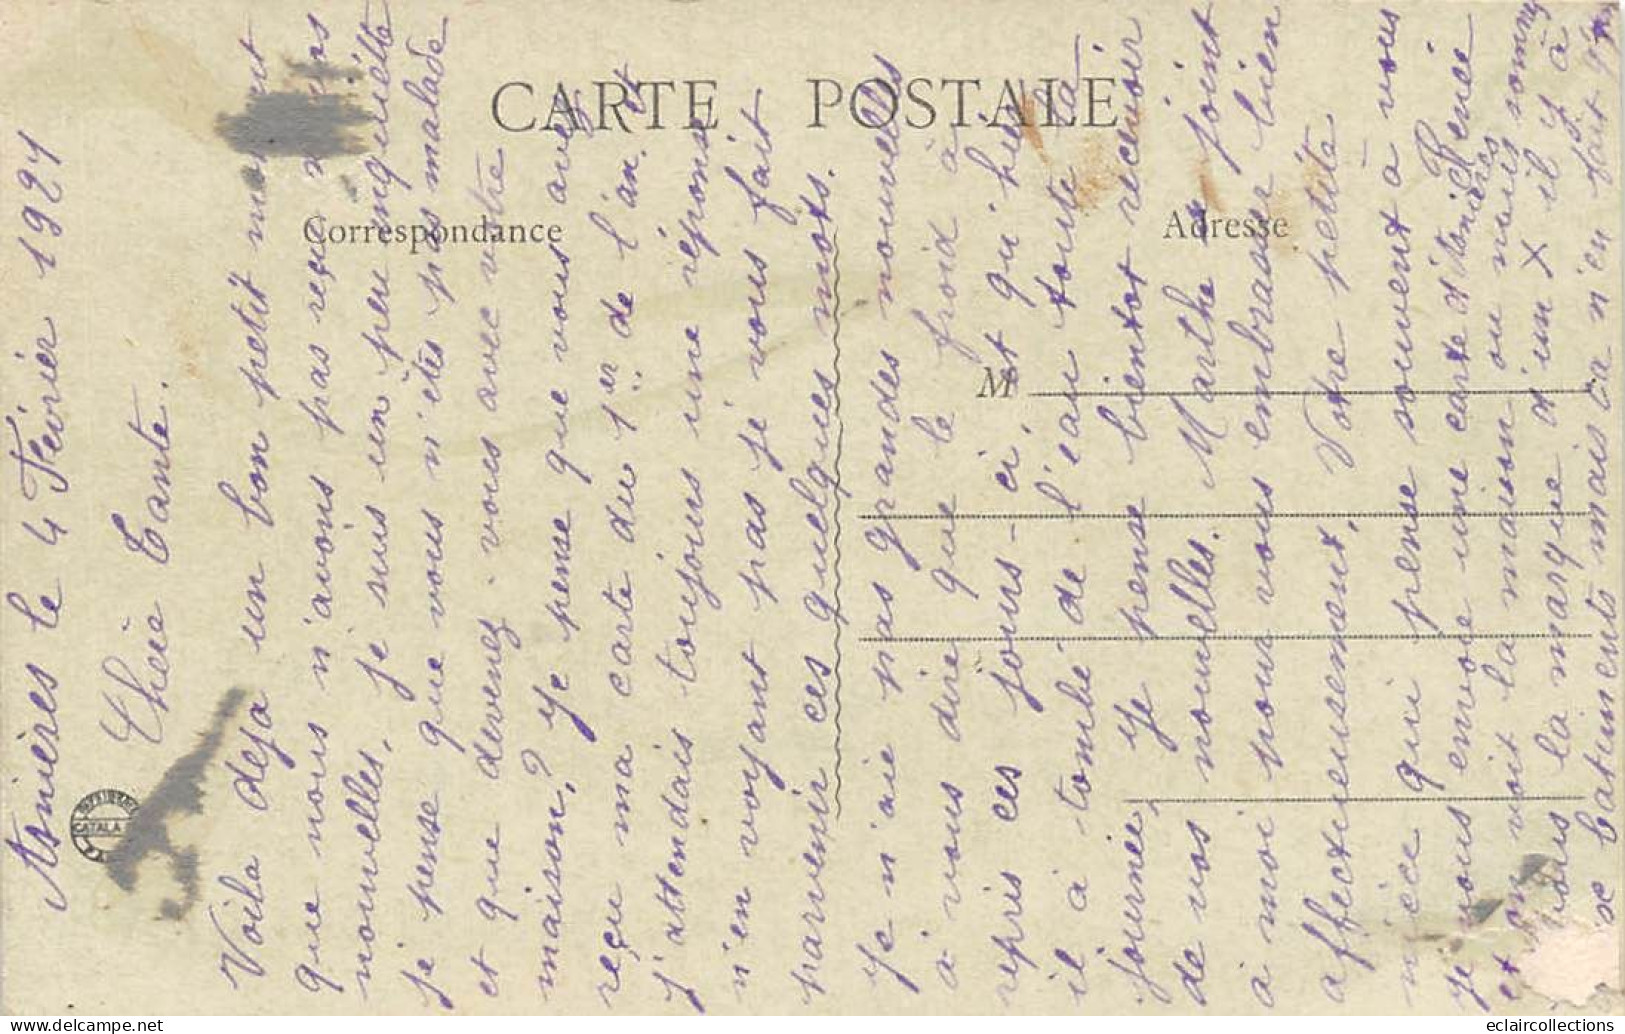 CARTE POSTALE
Correspondance
Adresse
M
CATALA
Asnières le 4 Février 1921
Chère Tante.
Voila deja un bon petit
que nous n'avons pas reçu
nouvelles, je suis un peu inquiétte
je pense que vous n'êtes pas malade
et que devenez-vous avec votre
maison? Je pense que vous avez
reçu ma carte du 1er de l'an. et
j'attendais toujours une réponse
n'en voyant pas je vous fait
parvenir ces quelques mots.
Je n'aie pas grandes nouvelles
à vous dire que le froid à
repris ces jours-ci, et qu'hier
il à tombé de l'eau toute la
journée, je pense bientot recevoir
de vos nouvelles. Marthe ce joint
à moi pour vous embrasser bien
affectueusement. Votre petite
nièce qui pense souvent à vous
Renée
je vous envoie une carte d'Asnières
et l'on voit la maison ou nous sommes
la marque d'un X il y à
se batiments mais ca n'en fait qu'
eclaircollections